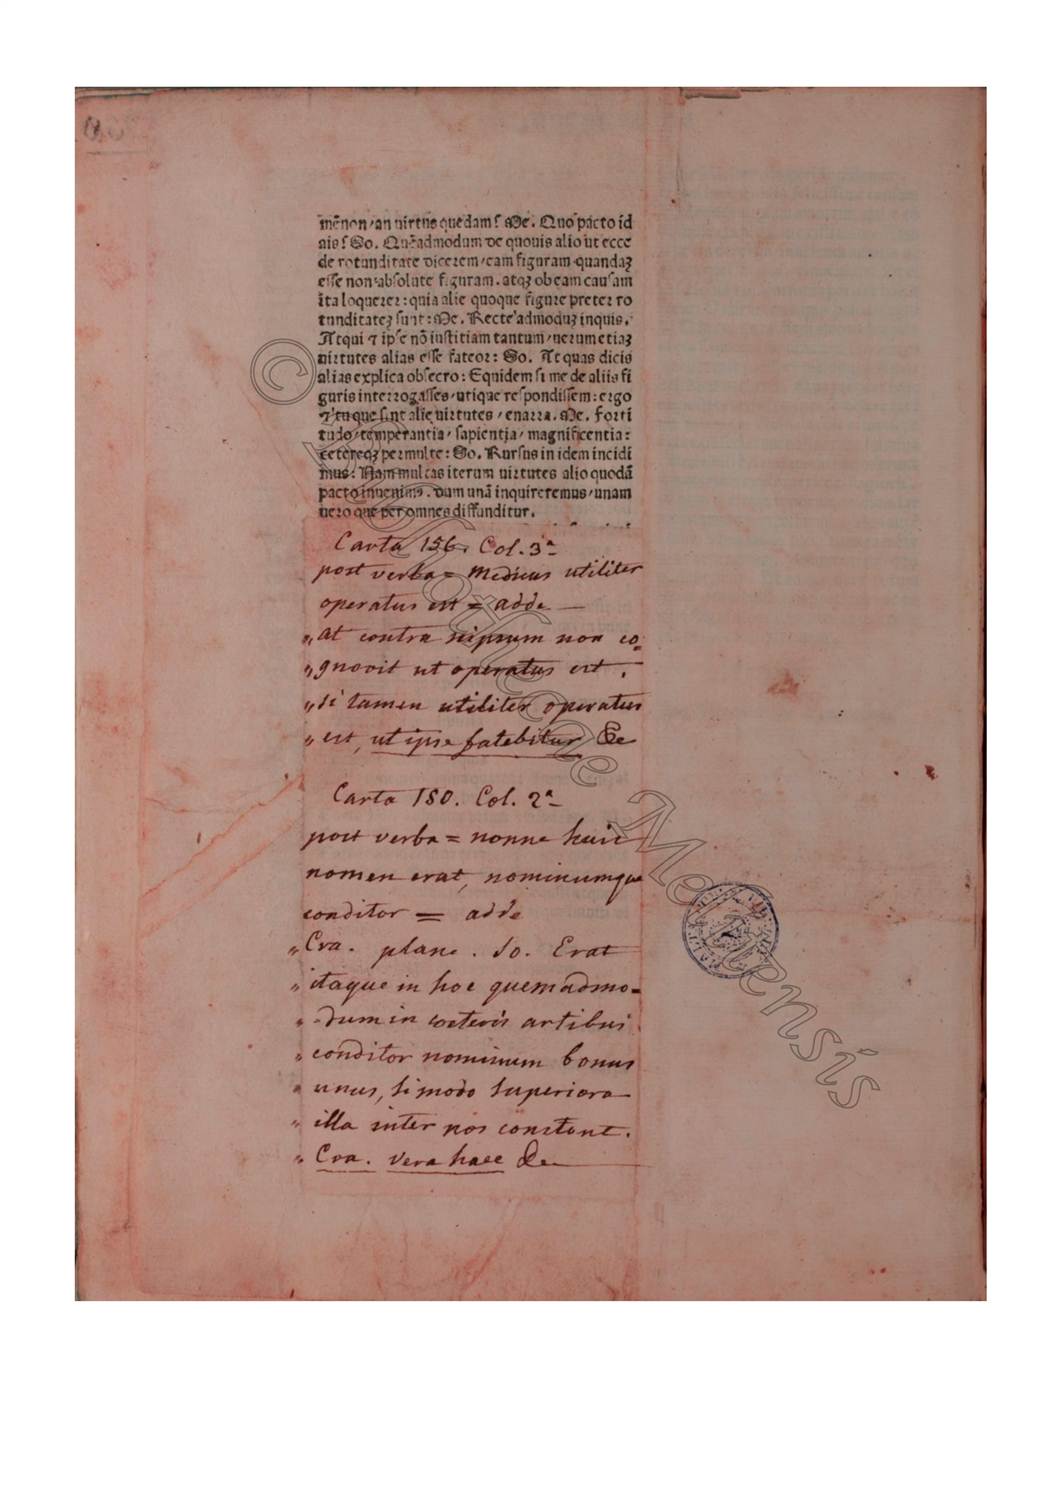 mẽnon / an uirtus quedam ? Me. Quo pacto id
ais ? So. Quẽadmodum de quouis alio ut ecce
de rotunditate dicerem / eam figuram quandaꝫ
esse non absolute figuram. atqꝫ ob eam causam
ita loquerer : quia alie quoque figure preter ro
tunditateꝫ sunt : Me. Recte admoduꝫ inquis.
Atqui ⁊ ipse nõ iustitiam tantum / uerum etiaꝫ
uirtutes alias esse fateor : So. At quas dicis
alias explica obsecro : Equidem si me de aliis fi
guris interrogasses / utique respondissem : ergo
⁊ tu que sint alie uirtutes / enarra. Me. Forti
tudo / temperantia / sapientia / magnificentia :
cetereqꝫ permulte : So. Rursus in idem incidi
mus : Nam multas iterum uirtutes alio quodã
pacto inuenimus. dum unã inquireremus / unam
uero que per omnes diffunditur.
Carta 156. Col. 3ª
post verba = Medicus utiliter
operatus est = adde —
„ at contra seipsum non co=
„ gnovit ut operatus est.
„ si tamen utiliter operatus
„ est, ut ipse fatebitur &c
Carta 180. Col. 2ª
post verba = nonne huic
nomen erat, nominumque
conditor = adde
„ Cra. plane. So. Erat
„ itaque in hoc quemadmo=
„ dum in coeteris artibus
„ conditor nominum bonus
„ unus, si modo superiora
„ illa inter nos constant.
„ Cra. vera haec &c
© Bibliothèque Mejanensis